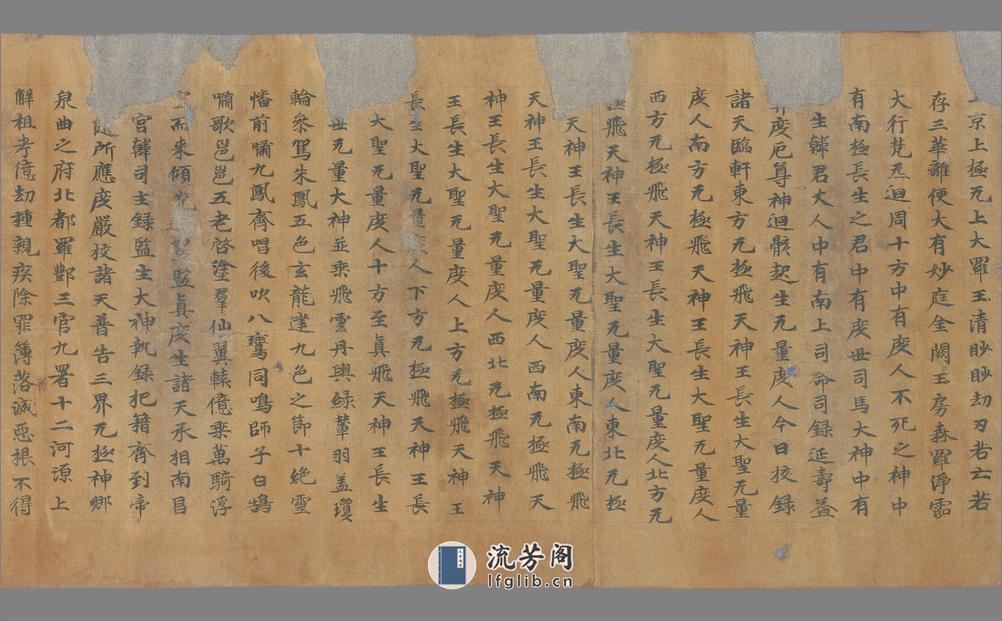 京上極无上大羅玉清眇眇劫刃若亡若
存三華離便大有妙庭金闕玉房森羅淨霐
大行梵炁迴周十方中有度人不死之神中
有南極長生之君中有度世司馬大神中有
生韓君丈人中有南上司命司録延壽益
度厄尊神迴骸起生无量度人今日挍録
諸天臨軒東方无極飛天神王長生大聖无量
度人南方无極飛天神王長生大聖无量度人
西方无極飛天神王長生大聖无量度人北方无
極飛天神王長生大聖无量度人東北无極
天神王長生大聖无量度人東南无極飛
天神王長生大聖无量度人西南无極飛天
神王長生大聖无量度人西北无極飛天神
王長生大聖无量度人上方无極飛天神王
長生大聖无量人下方无極飛天神王長
大聖无量度人十方至真飛天神王長生
世无量大神並乘飛雲丹輿緑輦羽盖瓊
輪驂駕朱鳳五色玄龍建九色之節十絶靈
幡前嘯九鳳齊唱後吹八鸞同鳴師子白鵠
嘯歌邕邕五老啓塗羣仙翼轅億乘萬騎浮
而來傾監真度生諸天丞相南昌
宫韓司主録監生大神執録把籍齊到帝
随所應度嚴挍諸天普告三界无極神鄉
泉曲之府北都羅酆三官九署十二河源上
解祖考億劫種親疾除罪簿落滅惡根不得
流芳阁
lfglib.cn